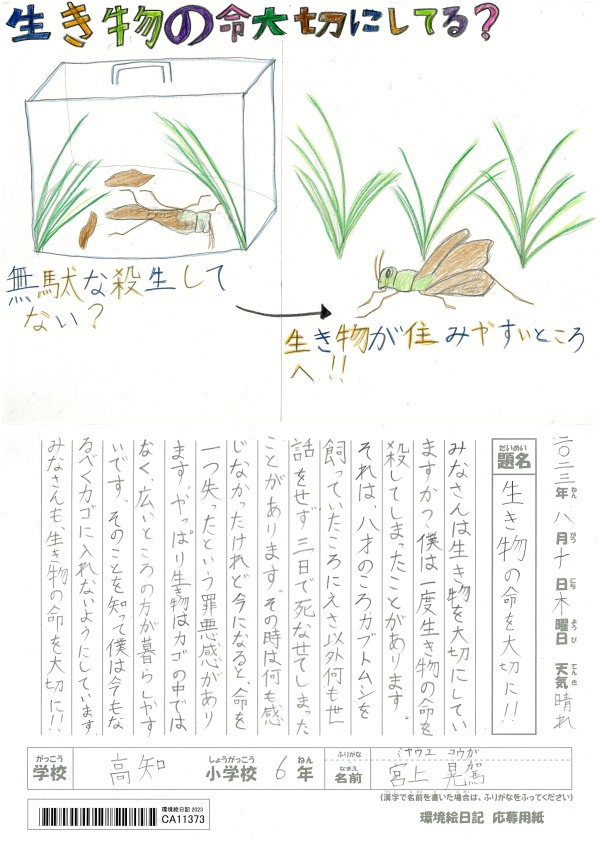 生き物の命大切にしてる？
無駄な殺生して
ない？
生き物が住みやすいところ
へ!!
二〇二三年八月十日木曜日 天気晴れ
ねん がつ にち ようび てんき
だいめい
題名 生き物の命を大切に!!
みなさんは生き物を大切にしてい
ますかつ、僕は一度生き物の命を
殺してしまったことがあります。
それは、八才のころカブトムシを
飼っていたころにえさ以外何も世
話をせず三日で死なせてしまった
ことがあります。その時は何も感
じなかったけれど今になると、命を
一つ失ったという罪悪感があり
ます。やっぱり生き物はカゴの中では
なく、広いところの方が暮らしやす
いです。そのことを知って僕は今もな
るべくカゴに入れないようにしています
みなさんも、生き物の命を大切に!!
がっこう しょうがっこう ねん ふりがな ミヤウエ コウガ
学校 高知 小学校 6年 なまえ 名前 宮上 晃駕
(漢字で名前を書いた場合は、ふりがなをふってください)
環境絵日記 2023
CA11373
環境絵日記 応募用紙